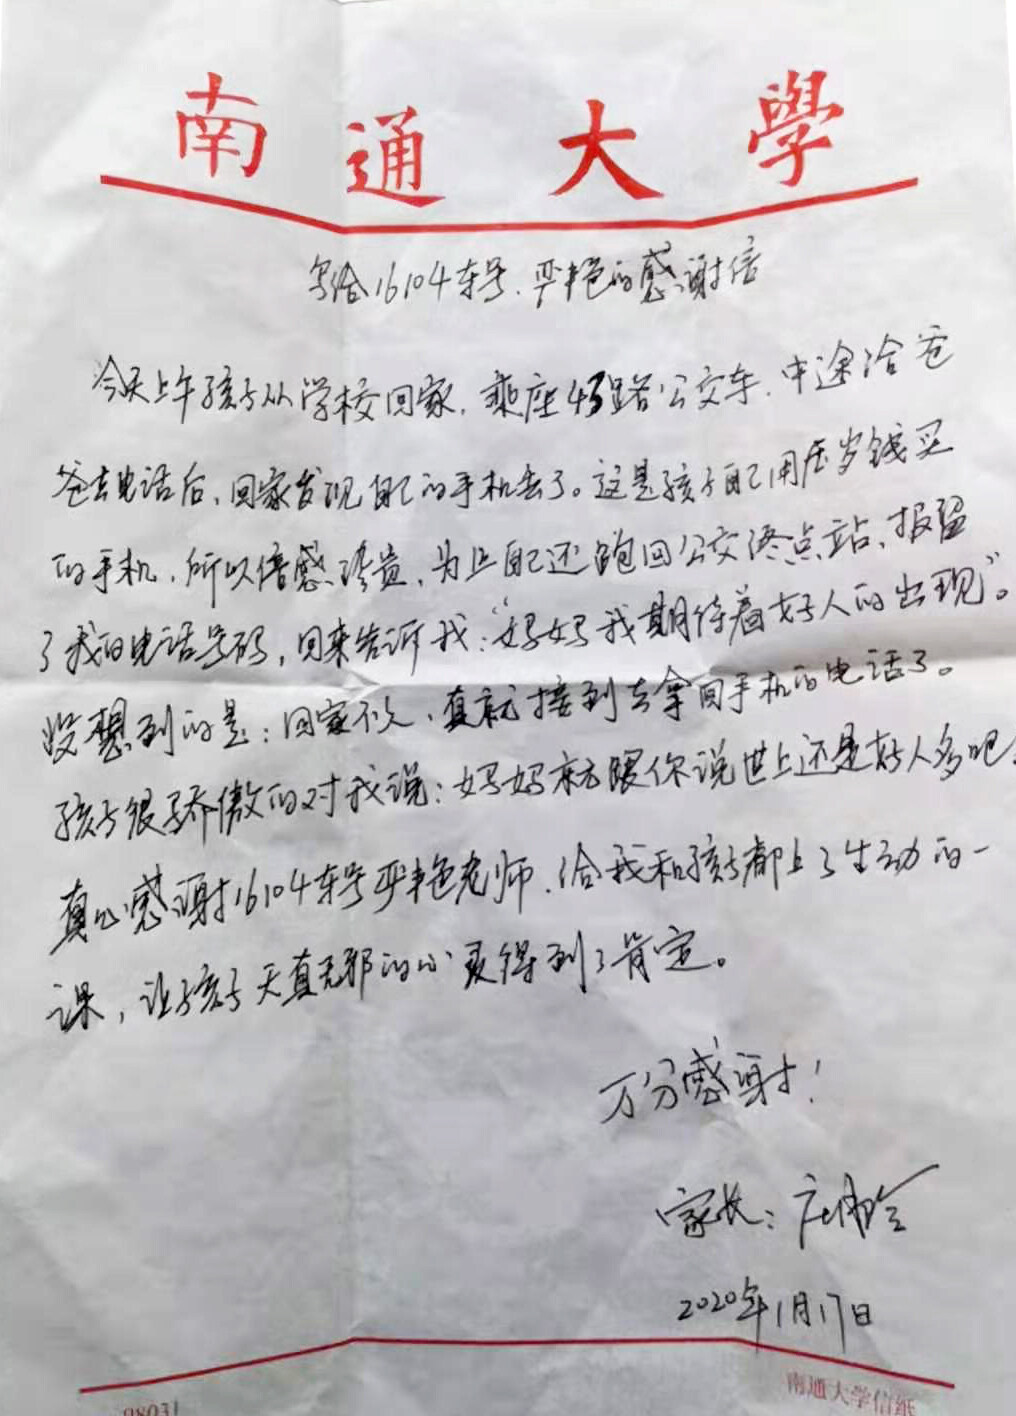 南通大學
写给16104车号.严艳的感谢信
今天上午孩子从学校回家.乘座43路公交车.中途给爸
爸去电话后,回家发现自己的手机丢了。这是孩子自己用压岁钱买
的手机.所以倍感珍贵.为此自己还跑回公交终点站、报留
了我的电话号码,回来告诉我:“妈妈我期待着好人的出现”。
没想到的是:回家不久.真就接到去拿回手机的电话了。
孩子很骄傲的对我说:妈妈就跟你说世上还是好人多吧.
真心感谢16104车号严艳老师.给我和孩子都上了生动的一
课,让孩子天真无邪的心灵得到了肯定。
万分感谢!
家长:庄
2020年1月17日
南通大学信纸
98031